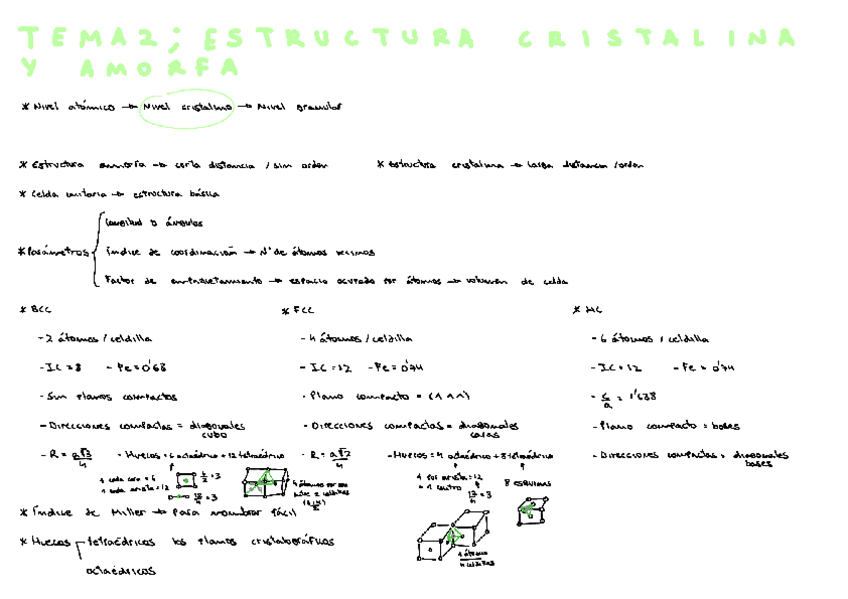 TEMA2; ESTRUCTURA CRISTALINA
Y AMORFA
* Nivel atómico → Nivel cristalino → Nivel granular
* Estructura amorfa → corta distancia / sin orden
* estructura cristalina → larga distancia / orden
* Celda unitaria → estructura básica
* Parámetros
longitud o ángulos
Índice de coordinación → Nº de átomos vecinos
Factor de empaquetamiento → espacio ocupado por átomos → volumen de celda
* BCC
- 2 átomos / celdilla
- IC = 8 - Fe = 0'68
- Sin planos compactos
- Direcciones compactas = diagonales cubo
- R = a√3/4 - Huecos = 6 octaédrico + 12 tetraédrico
1 cada cara = 6 6/2 = 3
1 cada arista = 12 12/4 = 3
* FCC
- 4 átomos / celdilla
- IC = 12 - Fe = 0'74
- Plano compacto = (111)
- Direcciones compactas = diagonales caras
- R = a√2/4 - Huecos = 4 octaédrico + 8 tetraédrico
1 por arista = 12
+ 1 centro 12/4 = 3
8 esquinas
1 átomo
4 celdillas
* HC
- 6 átomos / celdilla
- IC = 12 - Fe = 0'74
- c/a = 1'633
- Plano compacto = bases
- Direcciones compactas = diagonales bases
* Índice de Miller → para nombrar fácil
* Huecos tetraédricos los planos cristalográficos
octaédricos